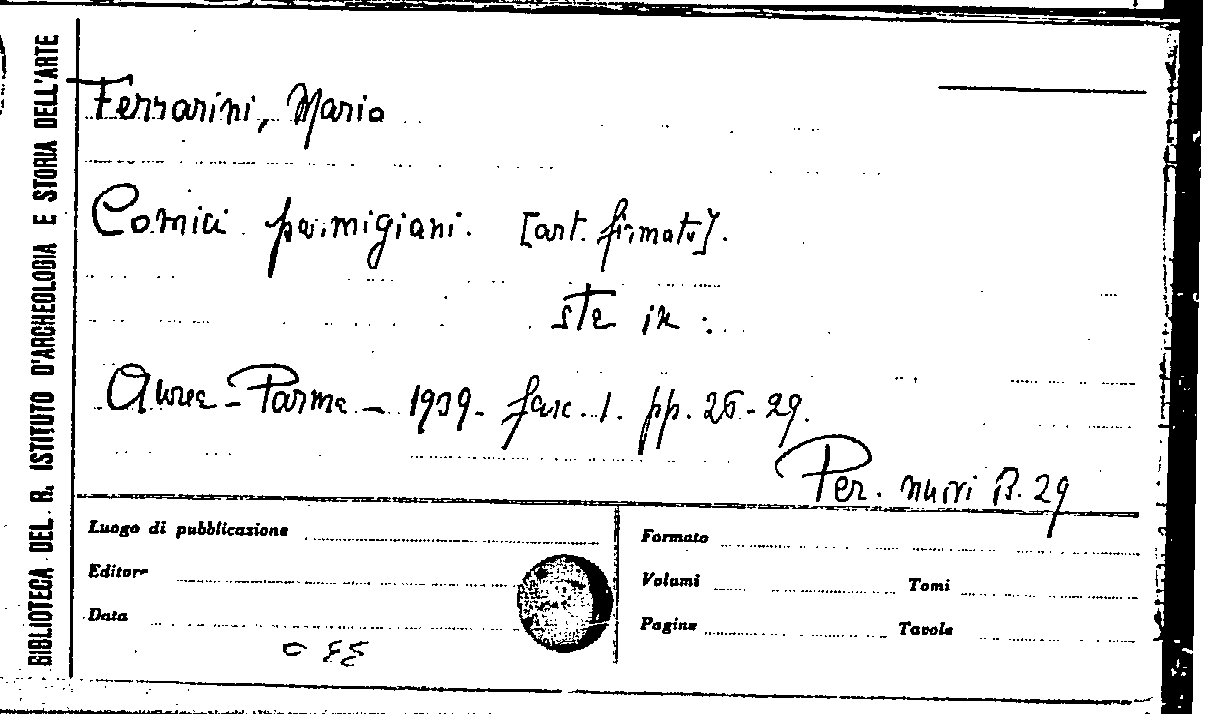 BIBLIOTECA DEL R. ISTITUTO D'ARCHEOLOGIA E STORIA DELL'ARTE
Ferrarini, Mario
Comici parmigiani. [art. firmato].
sta in:
Aurea-Parma - 1939 - fasc. 1. pp. 26-29.
Per. nuovi B. 29
Luogo di pubblicazione
Formato
Editore
Volumi Tomi
Data
Pagine Tavole